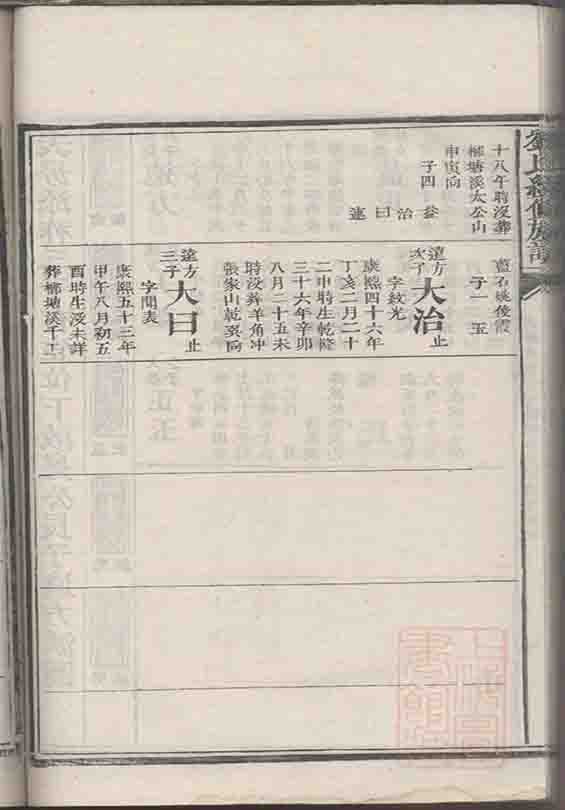 劉氏續修族譜
十八午時沒葬
榔塘溪太公山
申寅向
子四 益 治 曰 連
藍石姚後霞
子一 玉
遠方次子 大治 止
字紋光
康熙四十六年
丁亥二月二十
二申時生乾隆
三十六年辛卯
八月二十五未
時沒葬羊角冲
張家山乾巽向
遠方三子 大曰 止
字聞表
康熙五十三年
甲午八月初五
酉時生沒未詳
葬榔塘溪千工